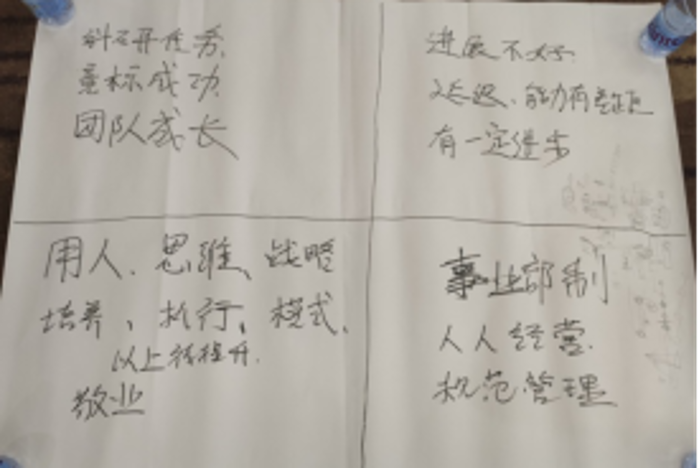 科研任务,
竞标成功,
团队成长
进展不好.
延迟、能力有差距
有一定进步
用人、思维、战略
培养、执行、模式、
以上待提升.
敬业
事业部制
人人经营.
规范管理